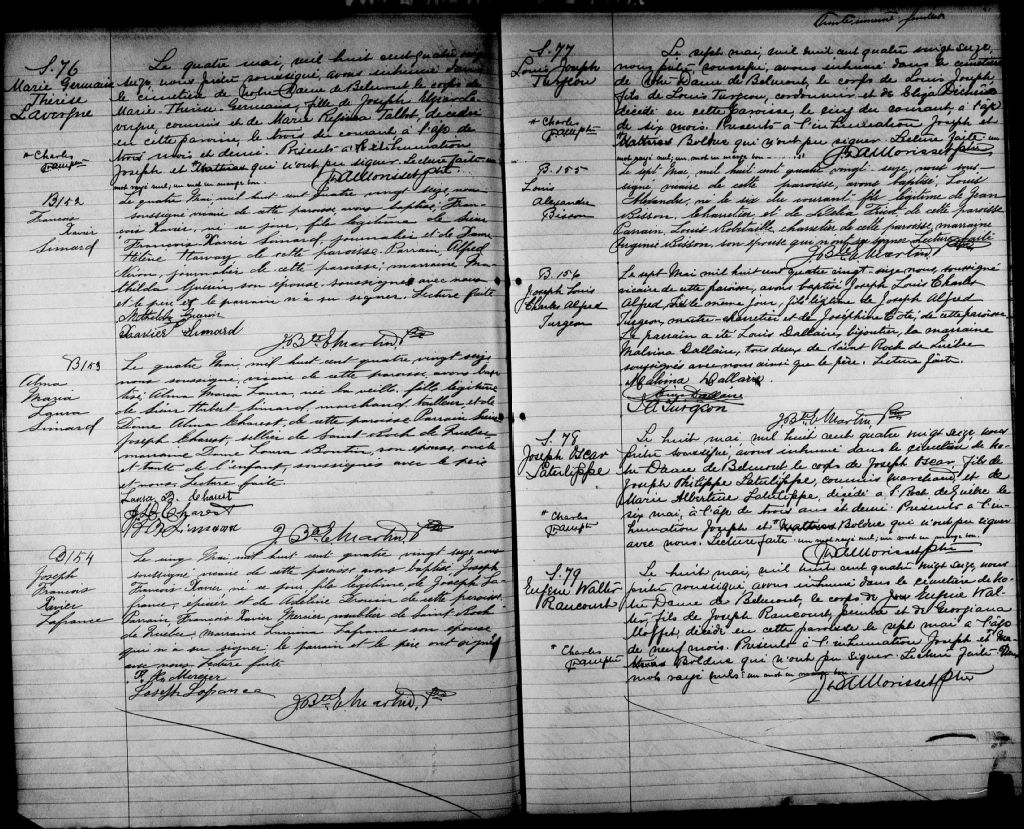 S. 76
Marie Germain
Thérèse
Lavergne
* Charles
J.A.M. ptre
Le quatre mai, mil huit cent quatre vingt
seize, nous prêtre soussigné, avons inhumé dans
le cimetière de Notre-Dame de Belmont le corps de
Marie-Thérèse-Germaine, fille de Joseph La-
vergne, commis et de Marie Regina Talbot, décédée
en cette paroisse, le trois du courant à l'âge de
trois mois et demi. Présents à l'inhumation
Joseph et * Mathias qui n'ont pu signer. Lecture faite. un
mot rayé nul; un mot en marge bon.
J.A. Morisset ptre
B152
Francois
Xavier
Simard
Le quatre Mai, mil huit cent quatre vingt seize, nous
soussigné vicaire de cette paroisse avons baptisé Fran-
cois Xavier, né ce jour, fils légitime de Sieur
François Xavier Simard, journalier et de Dame
Hélène Harvay de cette paroisse. Parrain, Alfred
journalier de cette paroisse; marraine Ma-
thilda Guérin, son épouse, soussignée avec nous
et le père et le parrain n'a su signer. Lecture faite
Mathilda Guérin
Xavier Simard
J. Bte E. Martin, Ptre
B153
Alma
Maria
Laura
Simard
Le quatre Mai, mil huit cent quatre vingt seize
nous soussigné, vicaire de cette paroisse, avons bap-
tisé Alma Maria Laura, née la veille, fille légitime
de Sieur Hubert Simard, marchand tailleur et de
Dame Alma Charest, de cette paroisse. Parrain Sieur
Joseph Charest, sellier de Saint-Roch de Québec
marraine Dame Laura Boutin, son épouse, oncle
et tante de l'enfant, soussignés avec le père
et nous. Lecture faite.
Laura B. Charest
Charest
Simard
J. Bte E. Martin, Ptre
B154
Joseph
Francois
Xavier
Lafrance
Le cinq Mai mil huit cent quatre vingt seize nous
soussigné vicaire de cette paroisse avons baptisé Joseph
François Xavier né ce jour, fils légitime de Joseph La-
france, épicier et de Adeline Drouin de cette paroisse
Parrain, François Xavier Mercier, meublier de Saint-Roch
de Québec, marraine Lafrance son épouse
qui n'a su signer; le parrain et le père ont signé
avec nous. Lecture faite
F. Xr Mercier
Joseph Lafrance
J. Bte E. Martin, Ptre
trente-unième feuillet
S. 77
Louis Joseph
Turgeon
* Charles
J.A.M. ptre
Le sept mai, mil huit cent quatre vingt seize,
nous prêtre soussigné, avons inhumé dans le cimetière
de Notre Dame de Belmont, le corps de Louis Joseph
fils de Louis Turgeon, cordonnier et de Eliza
décédé en cette paroisse, le cinq du courant, à l'âge
de six mois. Présents à l'inhumation Joseph et
* Mathias Bolduc qui n'ont pu signer. Lecture faite. un
mot rayé nul, un mot en marge bon.
J.A. Morisset ptre
B. 155
Louis
Alexandre
Bisson
Le sept Mai, mil huit cent quatre vingt-seize, nous sous-
signé vicaire de cette paroisse, avons baptisé, Louis
Alexandre, né le six du courant fils légitime de Jean
Bisson, charretier et de de cette paroisse
Parrain, Louis Robitaille, charretier de cette paroisse, marraine
Eugénie Bisson, son épouse qui n'ont su signer. Lecture faite
J. Bte E. Martin, Ptre
B. 156
Joseph Louis
Charles Alfred
Turgeon
Le sept Mai mil huit cent quatre vingt-seize nous, soussigné
vicaire de cette paroisse, avons baptisé Joseph Louis Charles
Alfred, né le même jour, fils légitime de Joseph Alfred
Turgeon, maître-charretier et de Joséphine Côté, de cette paroisse.
Le parrain a été Louis Dallaire, bijoutier, la marraine
Malvina Dallaire, tous deux de Saint Roch de Québec
soussignés avec nous ainsi que le père. Lecture faite.
Malvina Dallaire.
Louis Dallaire
J A Turgeon
J. Bte E. Martin Ptre
S. 78
Joseph Oscar
Latulippe
* Charles
J.A.M. ptre
Le huit mai, mil huit cent quatre vingt seize, nous
prêtre soussigné, avons inhumé dans le cimetière de No-
tre Dame de Belmont le corps de Joseph Oscar, fils de
Joseph Philippe Latulippe, commis marchand, et de
Marie Albertine Latulippe, décédé à St Roch de Québec le
six mai, à l'âge de trois ans et demi. Présents à l'in-
humation Joseph et * Mathias Bolduc qui n'ont pu signer
avec nous. Lecture faite. un mot rayé nul, un mot en marge bon.
J.A. Morisset ptre
S. 79
Eugène Walter
Rancourt
* Charles
J.A.M. ptre
Le huit mai, mil huit cent quatre vingt seize, nous
prêtre soussigné, avons inhumé dans le cimetière de No-
tre Dame de Belmont, le corps de Eugène Wal-
ter, fils de Joseph Rancourt, peintre et de Georgiana
Moffet, décédé en cette paroisse le sept mai à l'âge
de neuf mois. Présents à l'inhumation Joseph et * Ma-
thias Bolduc qui n'ont pu signer. Lecture faite. Deux
mots rayés nuls: un mot en marge bon.
J.A. Morisset ptre